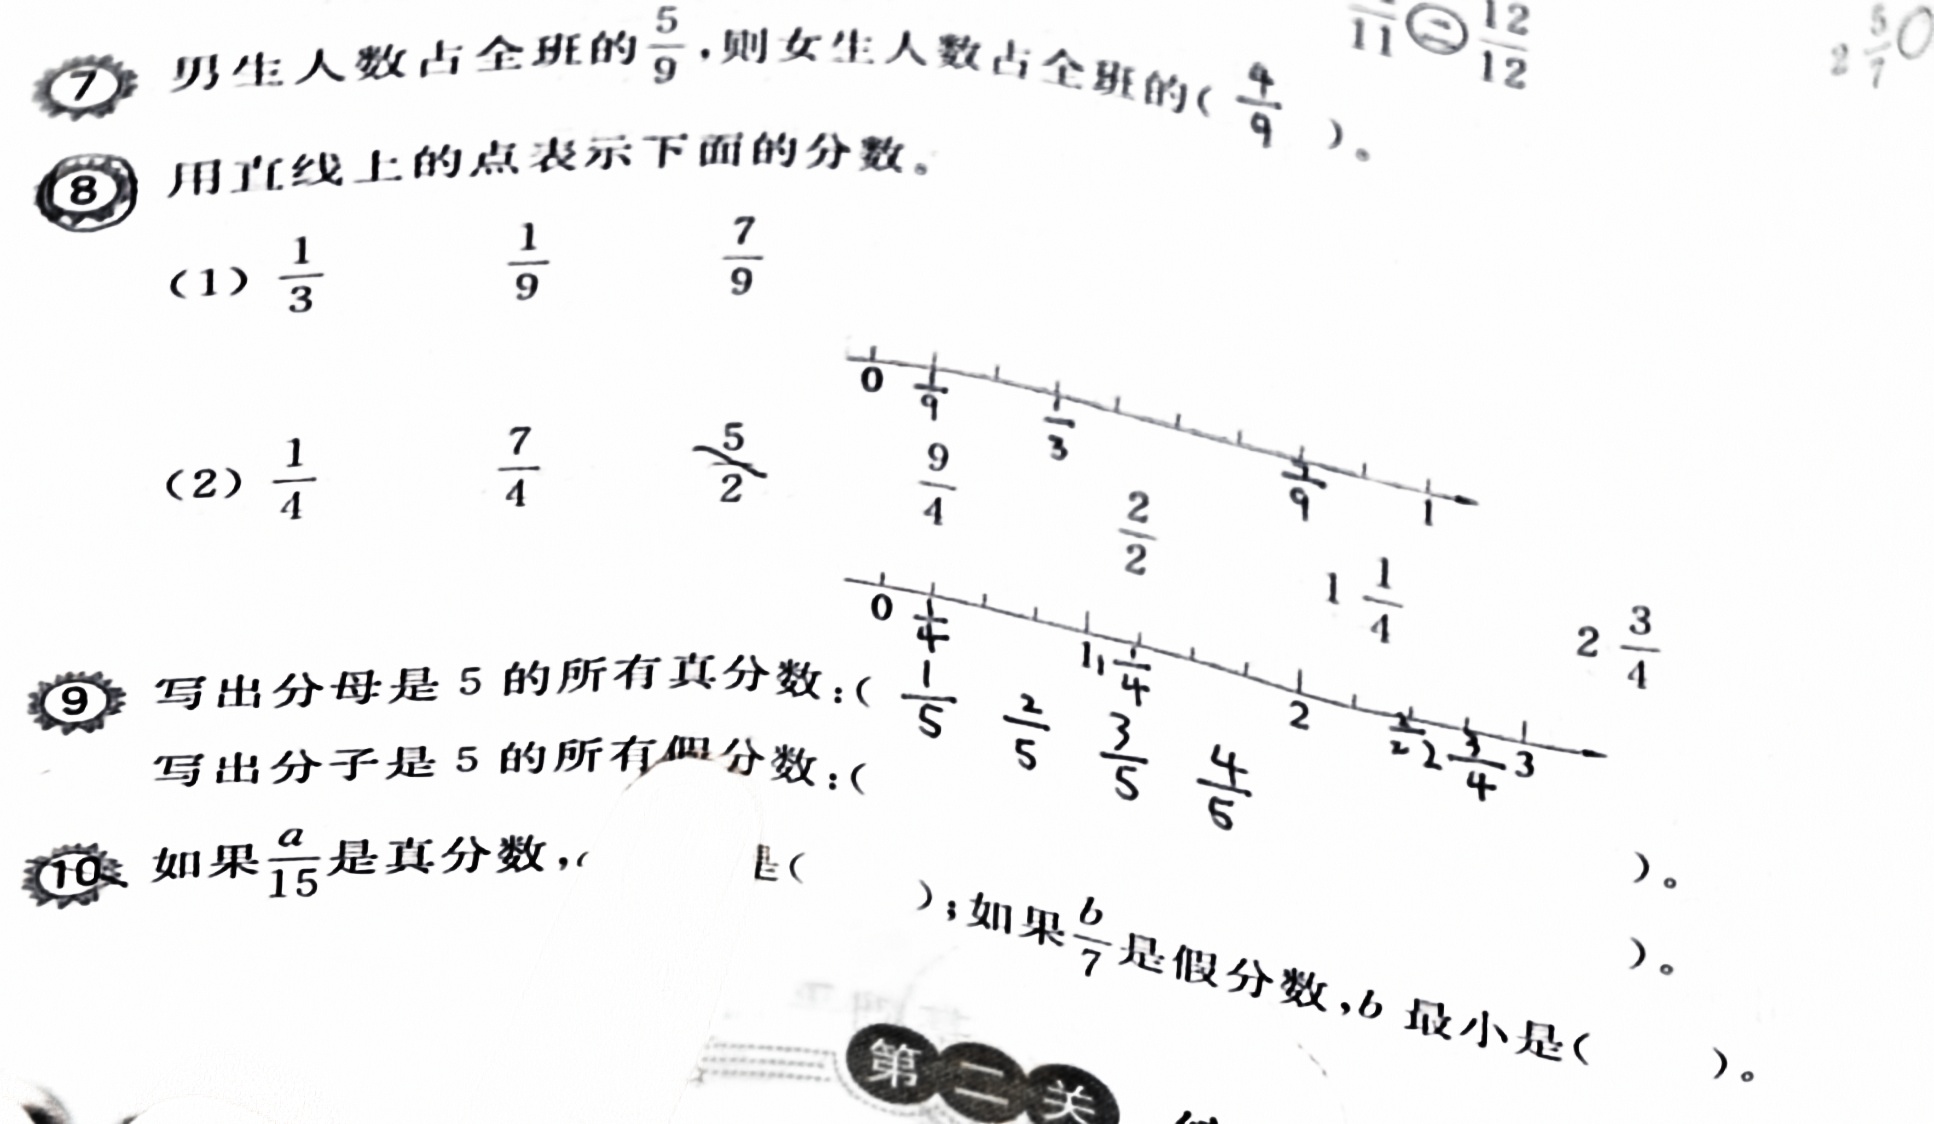 11 = 12/12 2 5/7
7 男生人数占全班的5/9,则女生人数占全班的(4/9)。
8 用直线上的点表示下面的分数。
(1) 1/3 1/9 7/9
0 1/9 1/3 7/9 1
(2) 1/4 7/4 5/2 9/4 2/2 1 1/4 2 3/4
0 1/4 1 1 1/4 2 2 3/4 3
9 写出分母是 5 的所有真分数:( 1/5 2/5 3/5 4/5 )。
写出分子是 5 的所有假分数:( )。
10 如果a/15是真分数, 是( );如果b/7是假分数,b 最小是( )。
第二关